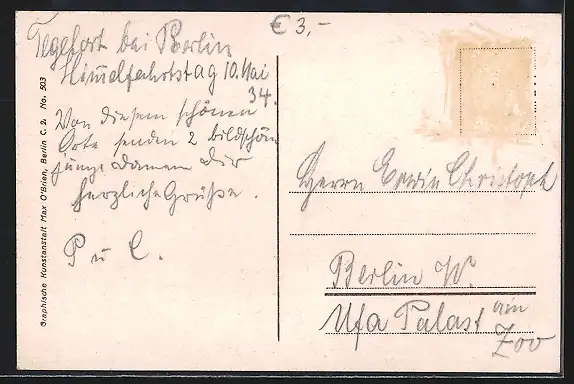 € 3,-
Tegelort bei Berlin
Himmelfahrtstag 10. Mai
34.
Von diesem schönen
Orte senden 2 bildschön
junge Damen Dir
herzliche Grüße.
P u C.
Herrn Erwin Christoph
Berlin W.
Ufa Palast am
Zoo
Graphische Kunstanstalt Max O'Brien, Berlin C. 2. No. 503